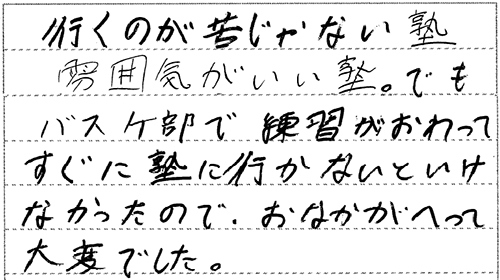 行くのが苦じゃない塾
雰囲気がいい塾。でも
バスケ部で練習がおわって
すぐに塾に行かないといけ
なかったので、おなかがへって
大変でした。